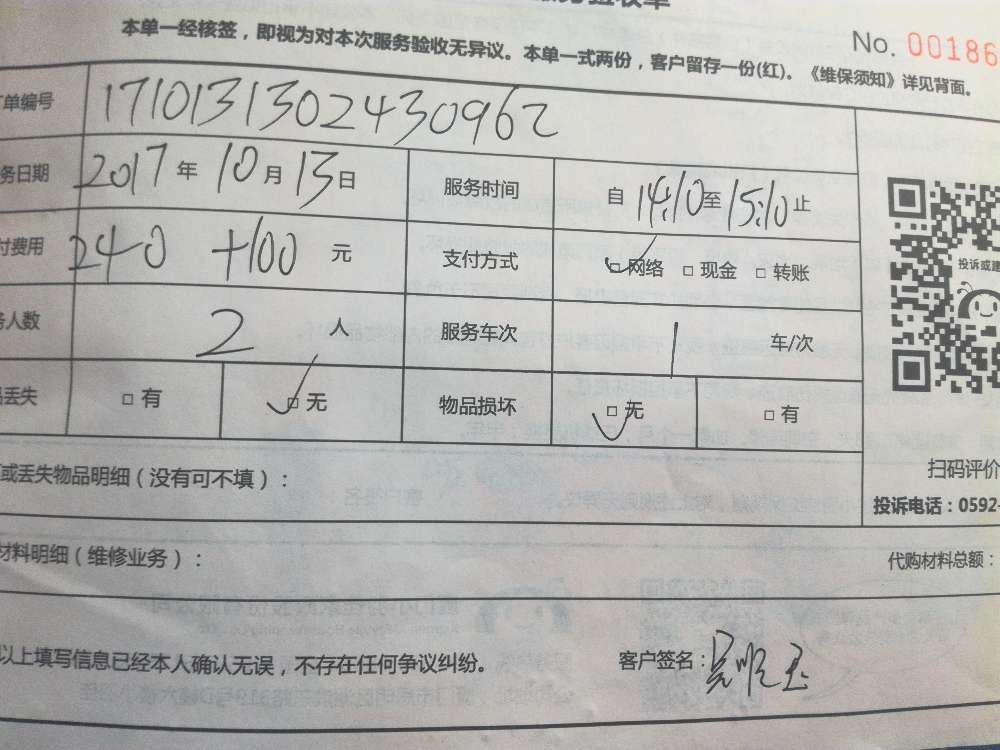 务验收单
本单一经核签，即视为对本次服务验收无异议。本单一式两份，客户留存一份(红)。《维保须知》详见背面。
No. 00186
订单编号 1710131302430962
务日期 2017年10月13日 服务时间 自14:10至15:10止
付费用 240 +100 元 支付方式 □网络 □现金 □转账
务人数 2 人 服务车次 1 车/次
品丢失 □有 □无 物品损坏 □无 □有
投诉或建
扫码评价
或丢失物品明细（没有可不填）：
投诉电话：0592-
材料明细（维修业务）：
代购材料总额：
以上填写信息已经本人确认无误，不存在任何争议纠纷。
客户签名：吴顺玉